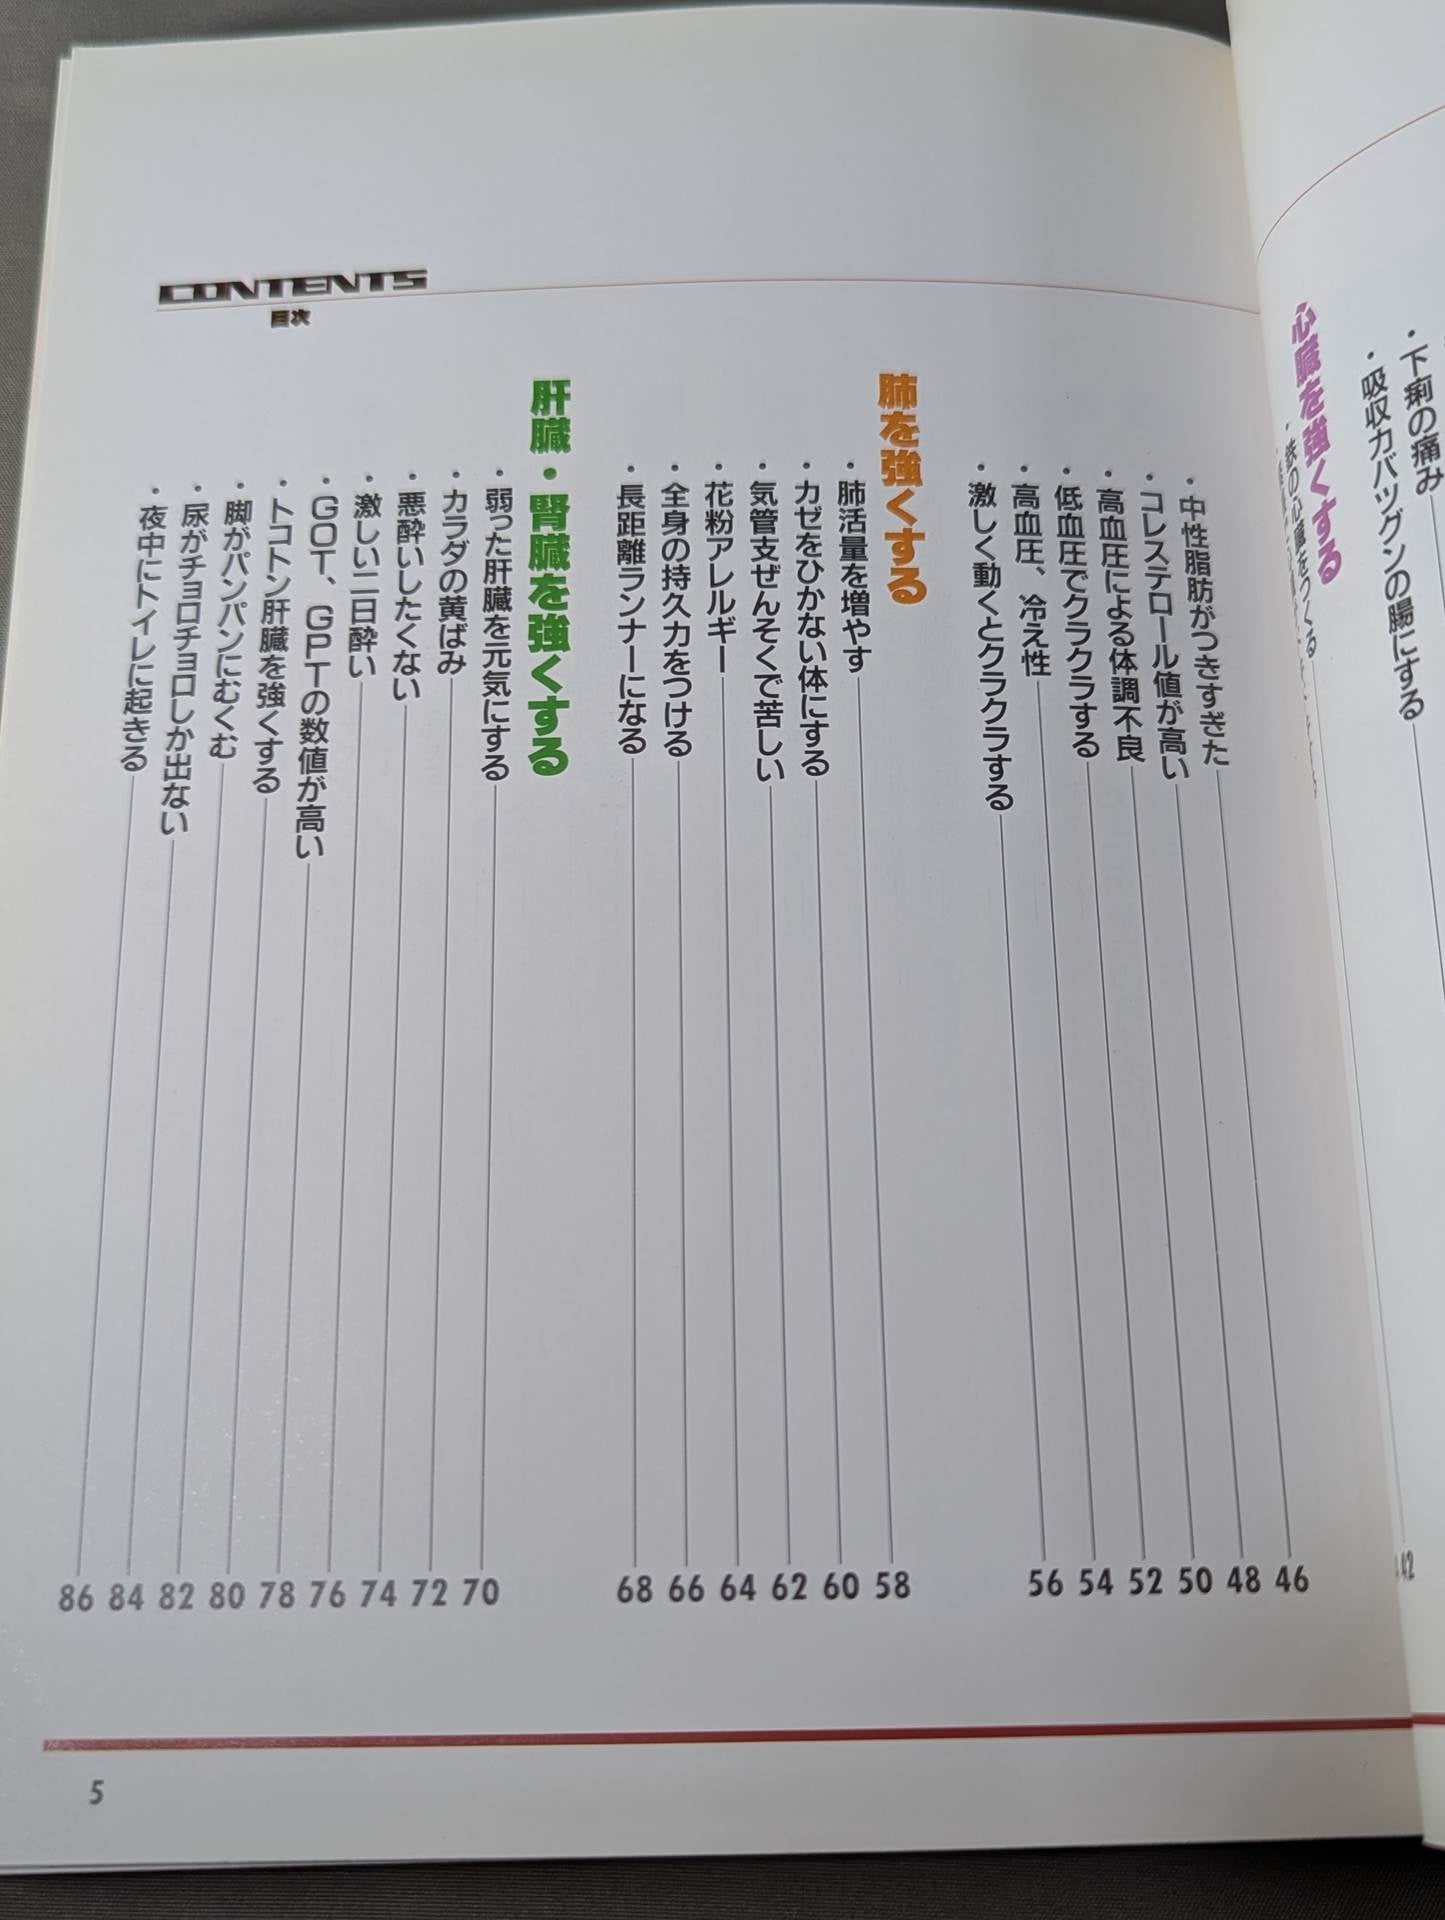 ・下痢の痛み
・吸収力バツグンの腸にする
42
心臓を強くする
・鉄の心臓をつくる
・中性脂肪がつきすぎた 46
・コレステロール値が高い 48
・高血圧による体調不良 50
・低血圧でクラクラする 52
・高血圧、冷え性 54
・激しく動くとクラクラする 56
肺を強くする
・肺活量を増やす 58
・カゼをひかない体にする 60
・気管支ぜんそくで苦しい 62
・花粉アレルギー 64
・全身の持久力をつける 66
・長距離ランナーになる 68
肝臓・腎臓を強くする
・弱った肝臓を元気にする 70
・カラダの黄ばみ 72
・悪酔いしたくない 74
・激しい二日酔い 76
・GOT、GPTの数値が高い 78
・トコトン肝臓を強くする 80
・脚がパンパンにむくむ 82
・尿がチョロチョロしか出ない 84
・夜中にトイレに起きる 86
CONTENTS
目次
5